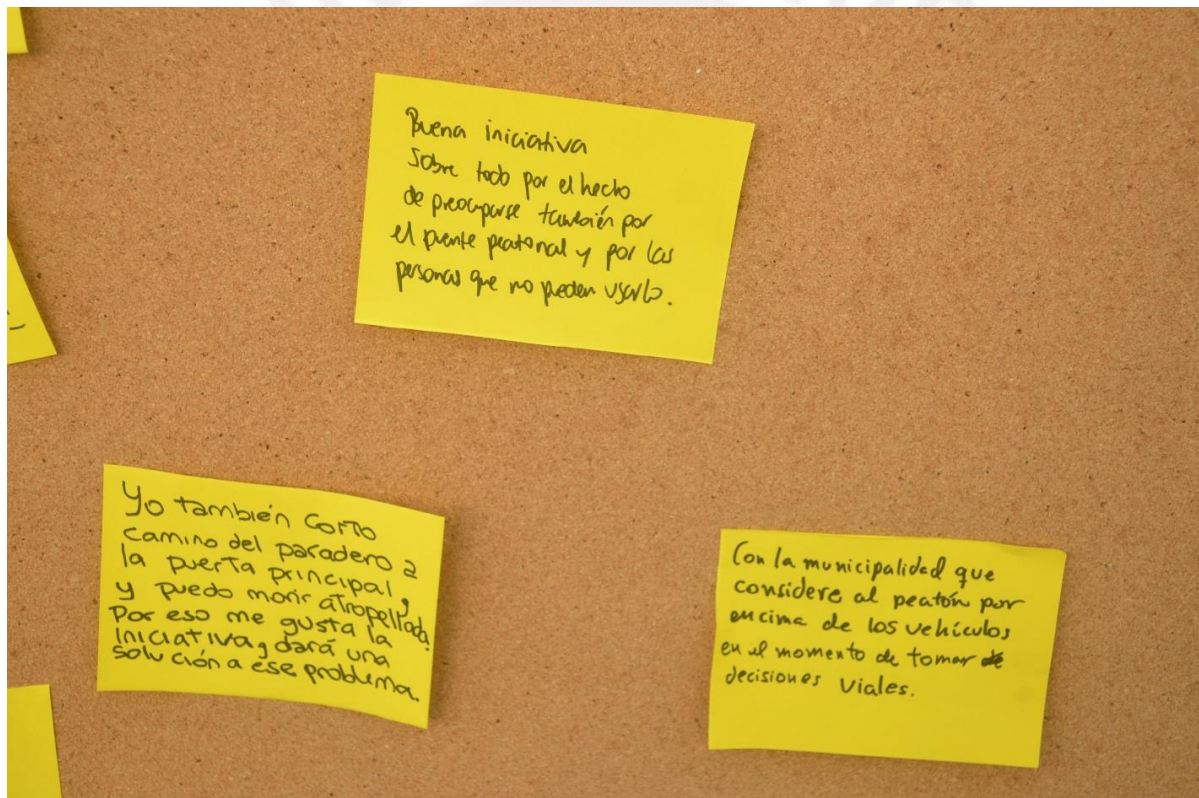 Buena iniciativa
Sobre todo por el hecho
de preocuparse también por
el puente peatonal y por las
personas que no pueden usarlo.
Yo también corto
camino del paradero a
la puerta principal,
y puedo morir atropellada.
Por eso me gusta la
iniciativa, dará una
solución a ese problema.
Con la municipalidad que
considere al peatón por
encima de los vehículos
en el momento de tomar
decisiones viales.